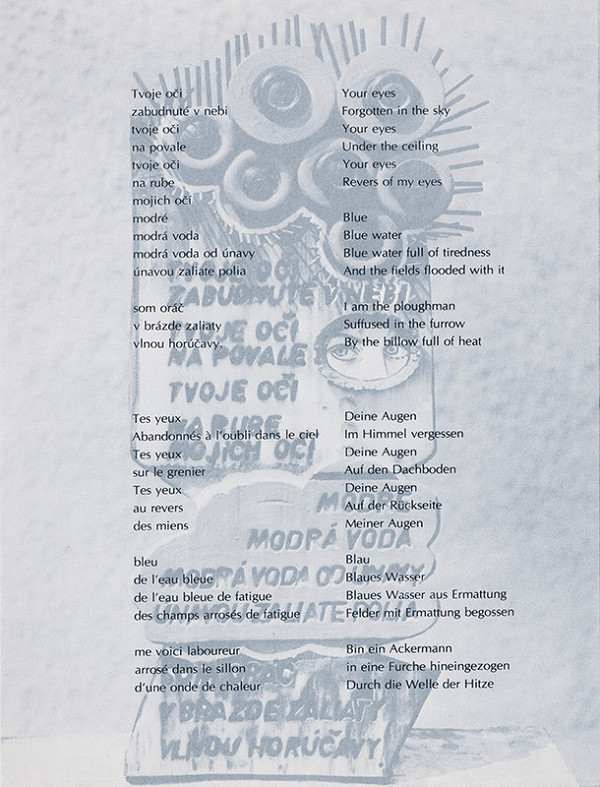 Tvoje oči
zabudnuté v nebi
tvoje oči
na povale
tvoje oči
na rube
mojich očí
modré
modrá voda
modrá voda od únavy
únavou zaliate polia
som oráč
v brázde zaliaty
vlnou horúčavy.
Your eyes
Forgotten in the sky
Your eyes
Under the ceiling
Your eyes
Revers of my eyes
Blue
Blue water
Blue water full of tiredness
And the fields flooded with it
I am the ploughman
Suffused in the furrow
By the billow full of heat
Tes yeux
Abandonnés à l'oubli dans le ciel
Tes yeux
sur le grenier
Tes yeux
au revers
des miens
bleu
de l'eau bleue
de l'eau bleue de fatigue
des champs arrosés de fatigue
me voici laboureur
arrosé dans le sillon
d'une onde de chaleur
Deine Augen
Im Himmel vergessen
Deine Augen
Auf den Dachboden
Deine Augen
Auf der Rückseite
Meiner Augen
Blau
Blaues Wasser
Blaues Wasser aus Ermattung
Felder mit Ermattung begossen
Bin ein Ackermann
in eine Furche hineingezogen
Durch die Welle der Hitze
TVOJE OČI
ZABUDNUTÉ V NEBI
TVOJE OČI
NA POVALE
TVOJE OČI
NA RUBE
MOJICH OČÍ
MODRÉ
MODRÁ VODA
MODRÁ VODA OD ÚNAVY
ÚNAVOU ZALIATE POLIA
ORÁČ
V BRÁZDE ZALIATY
VLNOU HORÚČAVY